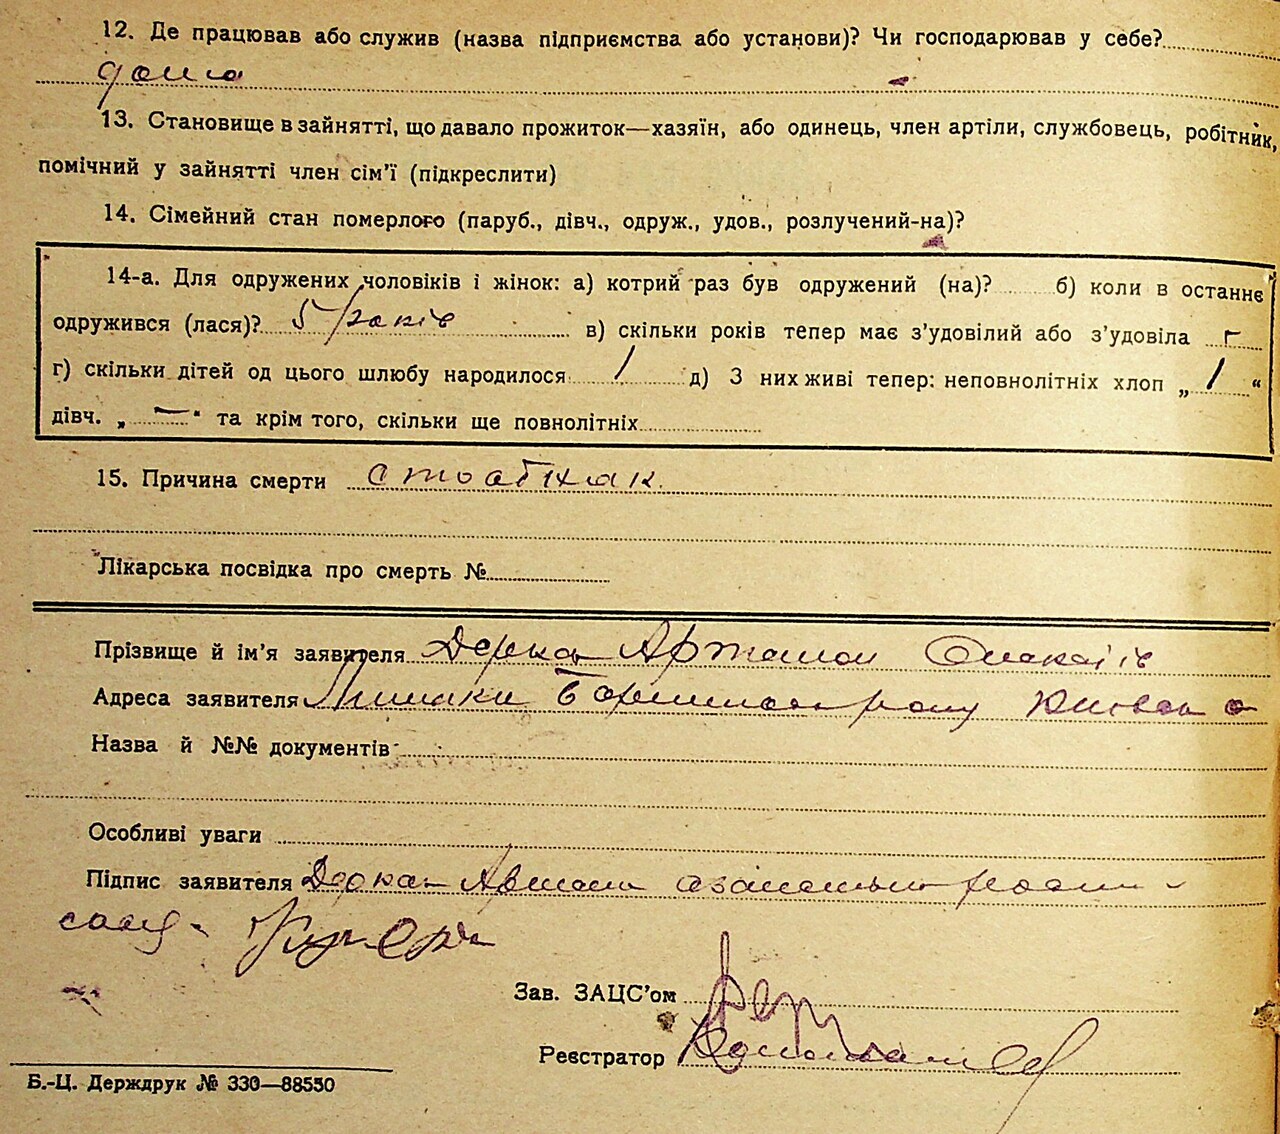 12. Де працював або служив (назва підприємства або установи)? Чи господарював у себе?
дома
13. Становище в зайнятті, що давало прожиток—хазяїн, або одинець, член артіли, службовець, робітник,
помічний у зайнятті член сім'ї (підкреслити)
14. Сімейний стан померлого (паруб., дівч., одруж., удов., розлучений-на)?
14-а. Для одружених чоловіків і жінок: а) котрий раз був одружений (на)? б) коли в останнє
одружився (лася)? 5 років в) скільки років тепер має з'удовілий або з'удовіла —
г) скільки дітей од цього шлюбу народилося 1 д) З них живі тепер: неповнолітніх хлоп „ 1 “
дівч. „ — “ та крім того, скільки ще повнолітніх
15. Причина смерти
Лікарська посвідка про смерть №
Прізвище й ім'я заявителя Деркач
Адреса заявителя району
Назва й №№ документів
Особливі уваги
Підпис заявителя Деркач
Зав. ЗАЦС'ом
Реєстратор
Б.-Ц. Держдрук № 330—88550